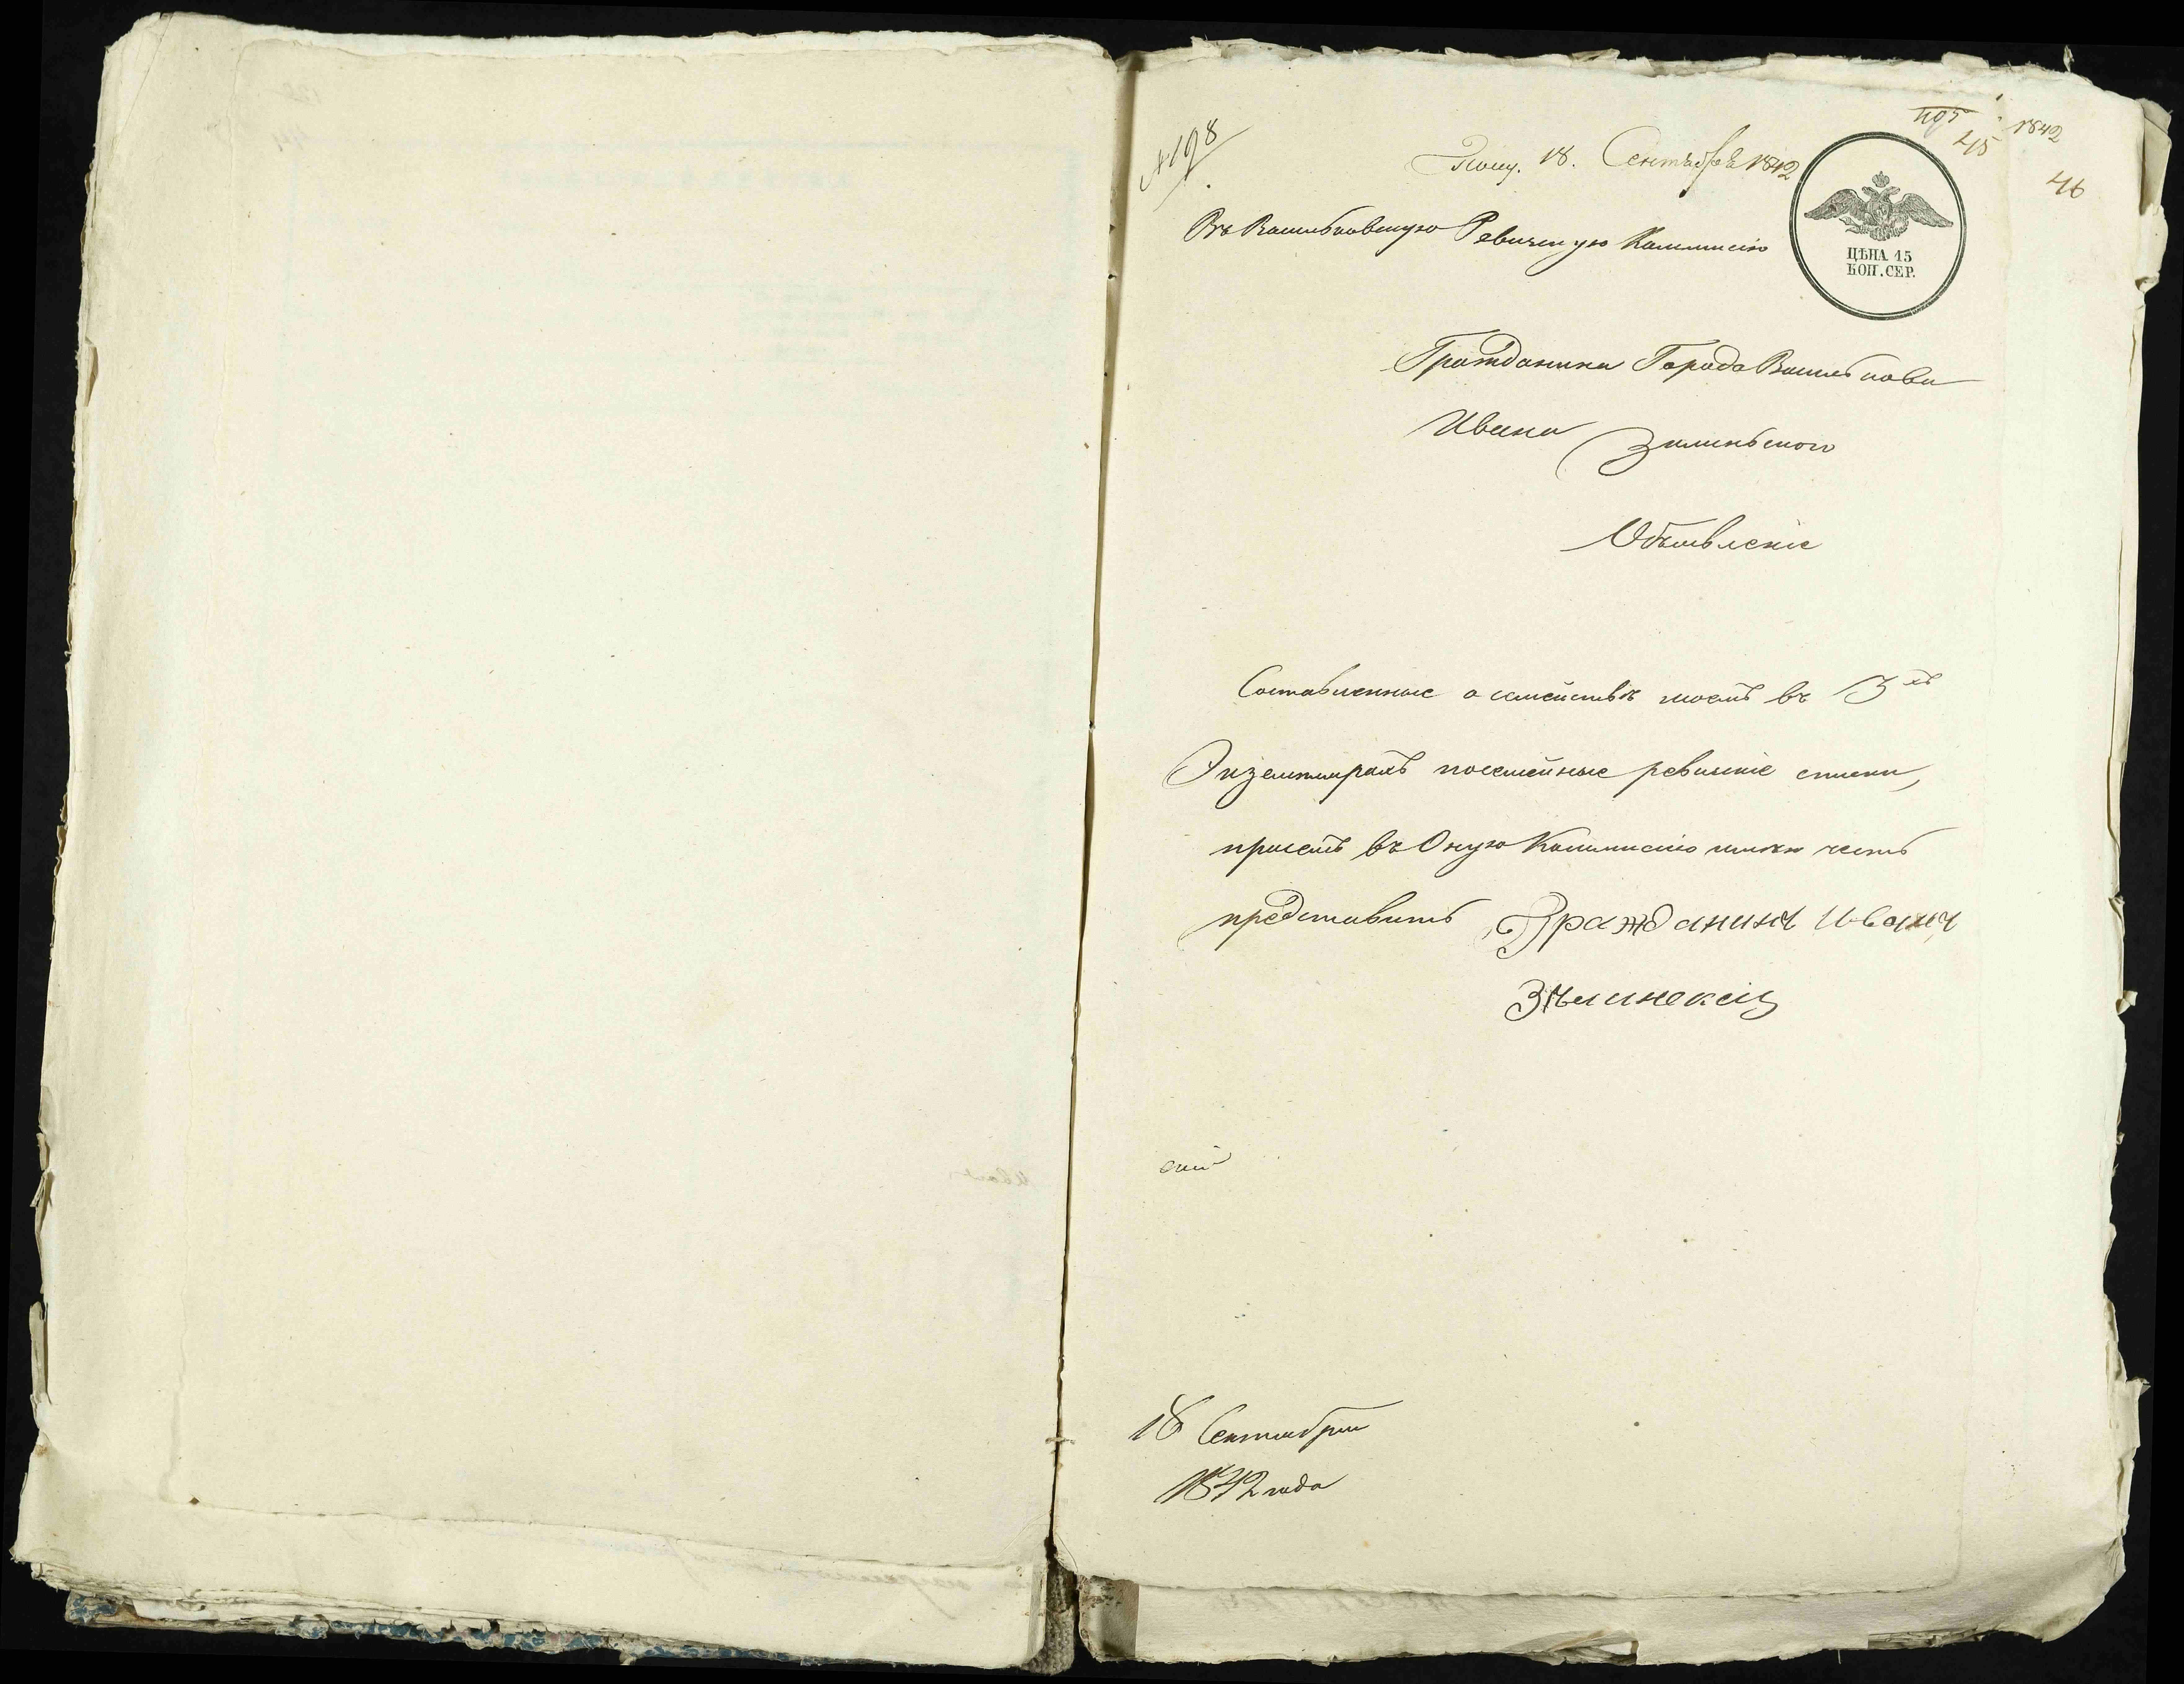 № 198
Получ. 18. Сентября 1842
1842
45
46
Въ Васильковскую Ревизкую Коммисію
ЦѢНА 15
КОП. СЕР.
Гражданина Города Василькова
Ивана Зилинского
Объявленіе
Составленные о семействѣ моемъ въ 3хъ
Экземплярахъ посемейные ревизкіе списки,
при семъ въ Оную Коммисію имѣю честь
представить Гражданинъ Иванъ
Зѣлинский
18 Сентября
1842 года